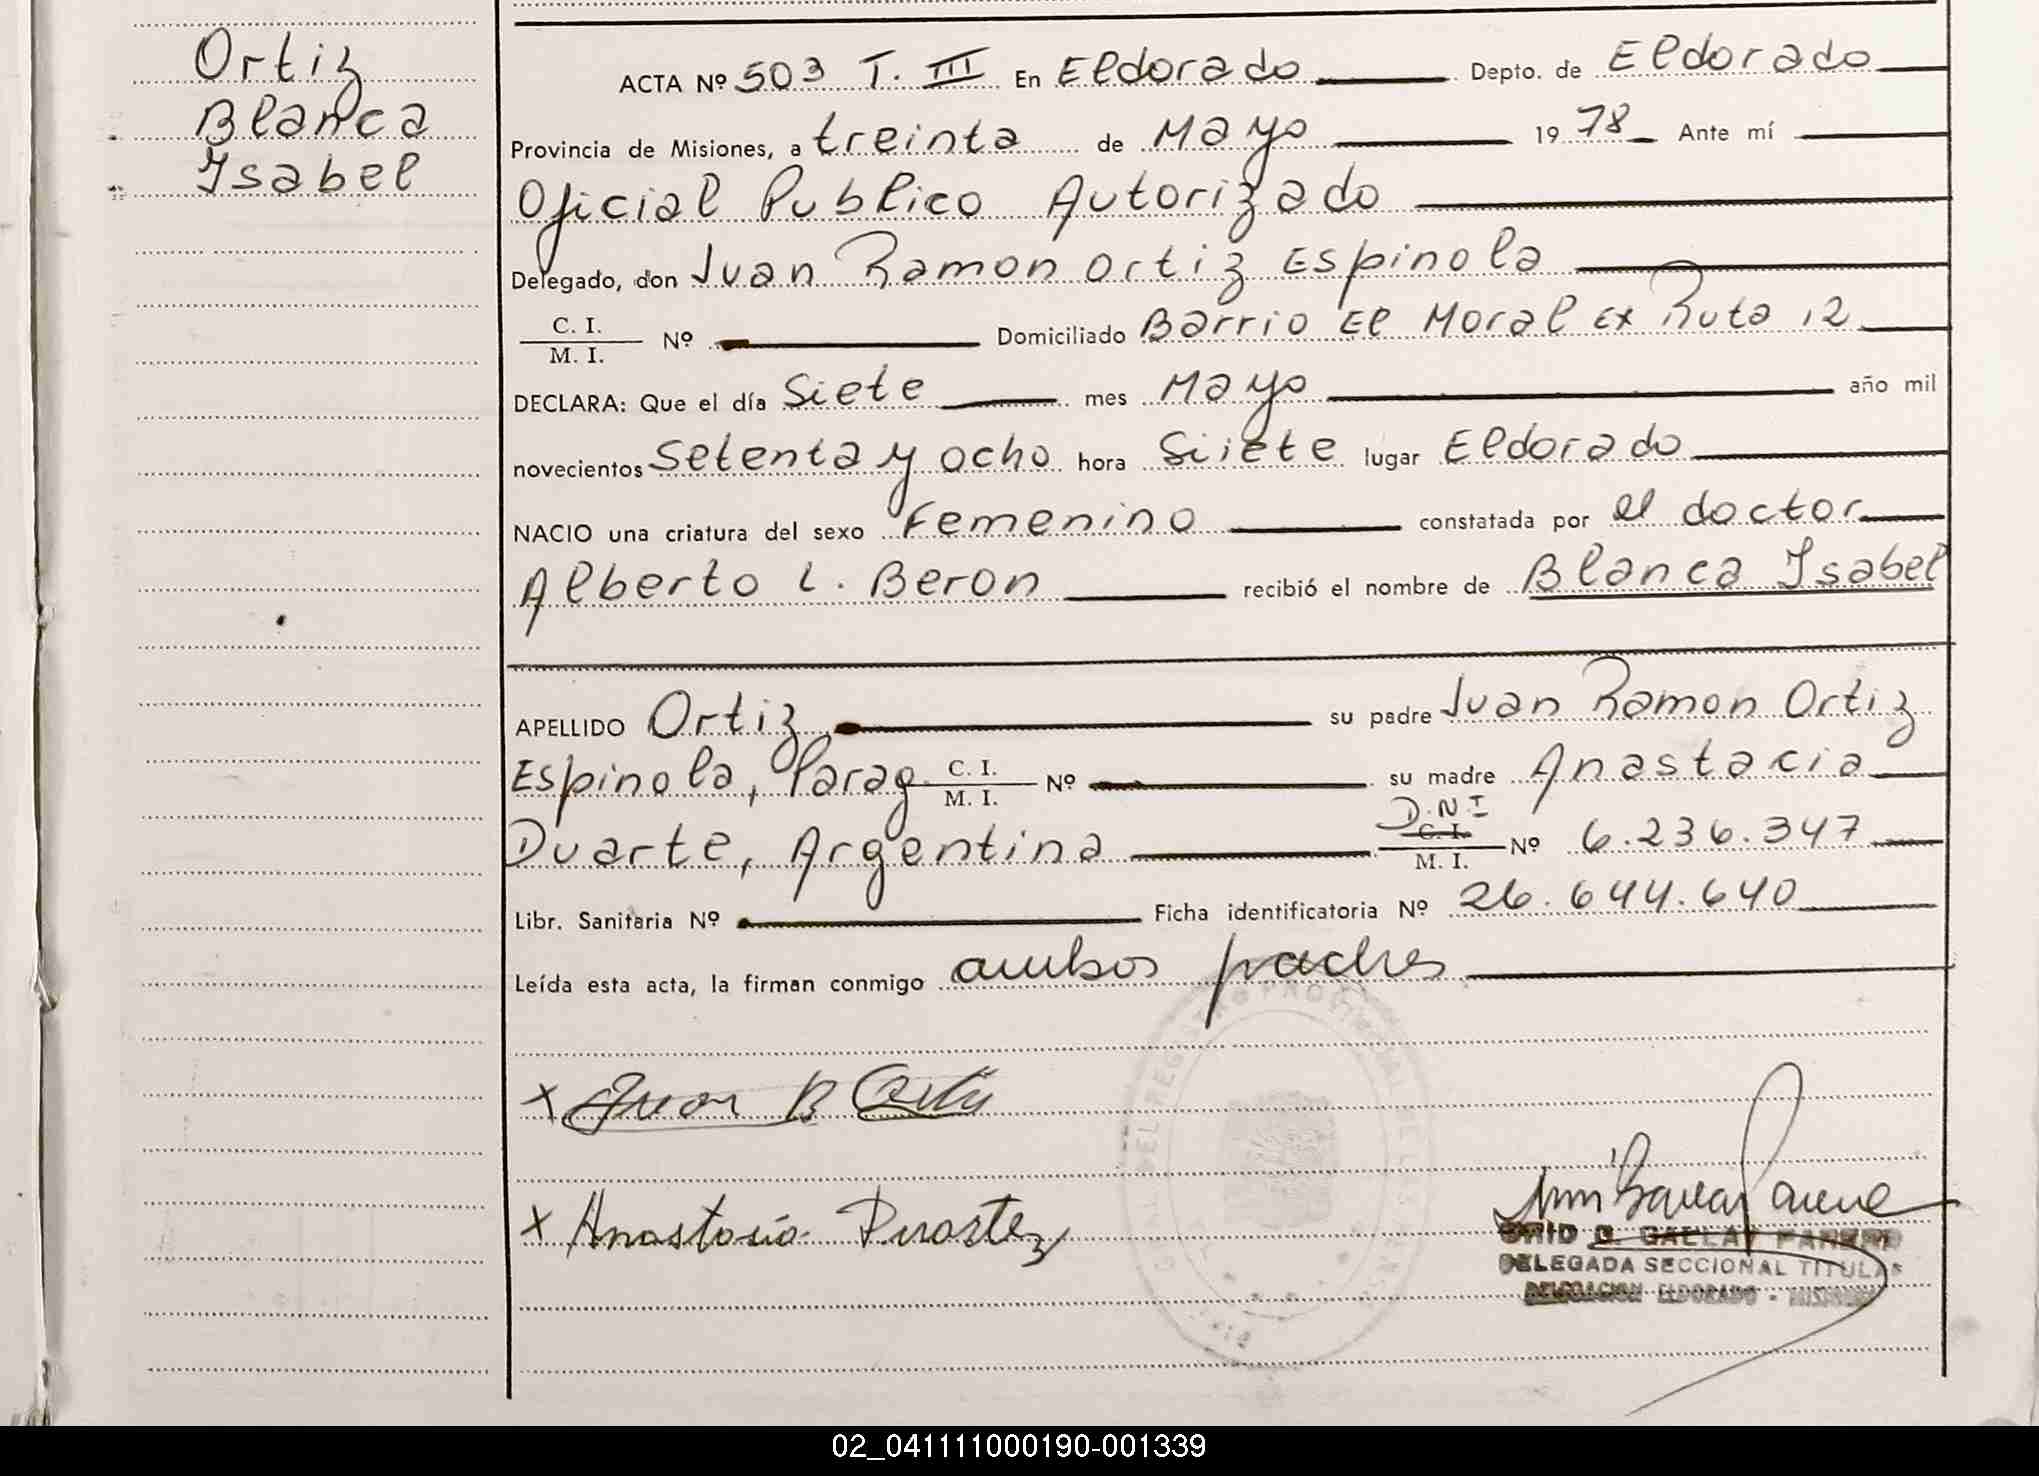 Ortiz
Blanca
Isabel
ACTA Nº 503 T. III En Eldorado Depto. de Eldorado
Provincia de Misiones, a treinta de Mayo 1978 Ante mí
Oficial Publico Autorizado
Delegado, don Juan Ramon Ortiz Espinola
C. I.
M. I. Nº Domiciliado Barrio El Moral Ex Ruta 12
DECLARA: Que el día Siete mes Mayo año mil
novecientos Setenta y ocho hora Siiete lugar Eldorado
NACIO una criatura del sexo Femenino constatada por el doctor
Alberto L. Beron recibió el nombre de Blanca Isabel
APELLIDO Ortiz su padre Juan Ramon Ortiz
Espinola, Parag. C. I. M. I. Nº su madre Anastacia
D.N.I
Duarte, Argentina C. I. M. I. Nº 6.236.347
Libr. Sanitaria Nº Ficha identificatoria Nº 26.644.640
Leída esta acta, la firman conmigo ambos padres
x Juan R Ortiz
x Anastasia Duartez
DELEGADA SECCIONAL TITULAR
DELEGACION ELDORADO - MISIONES
02_041111000190-001339